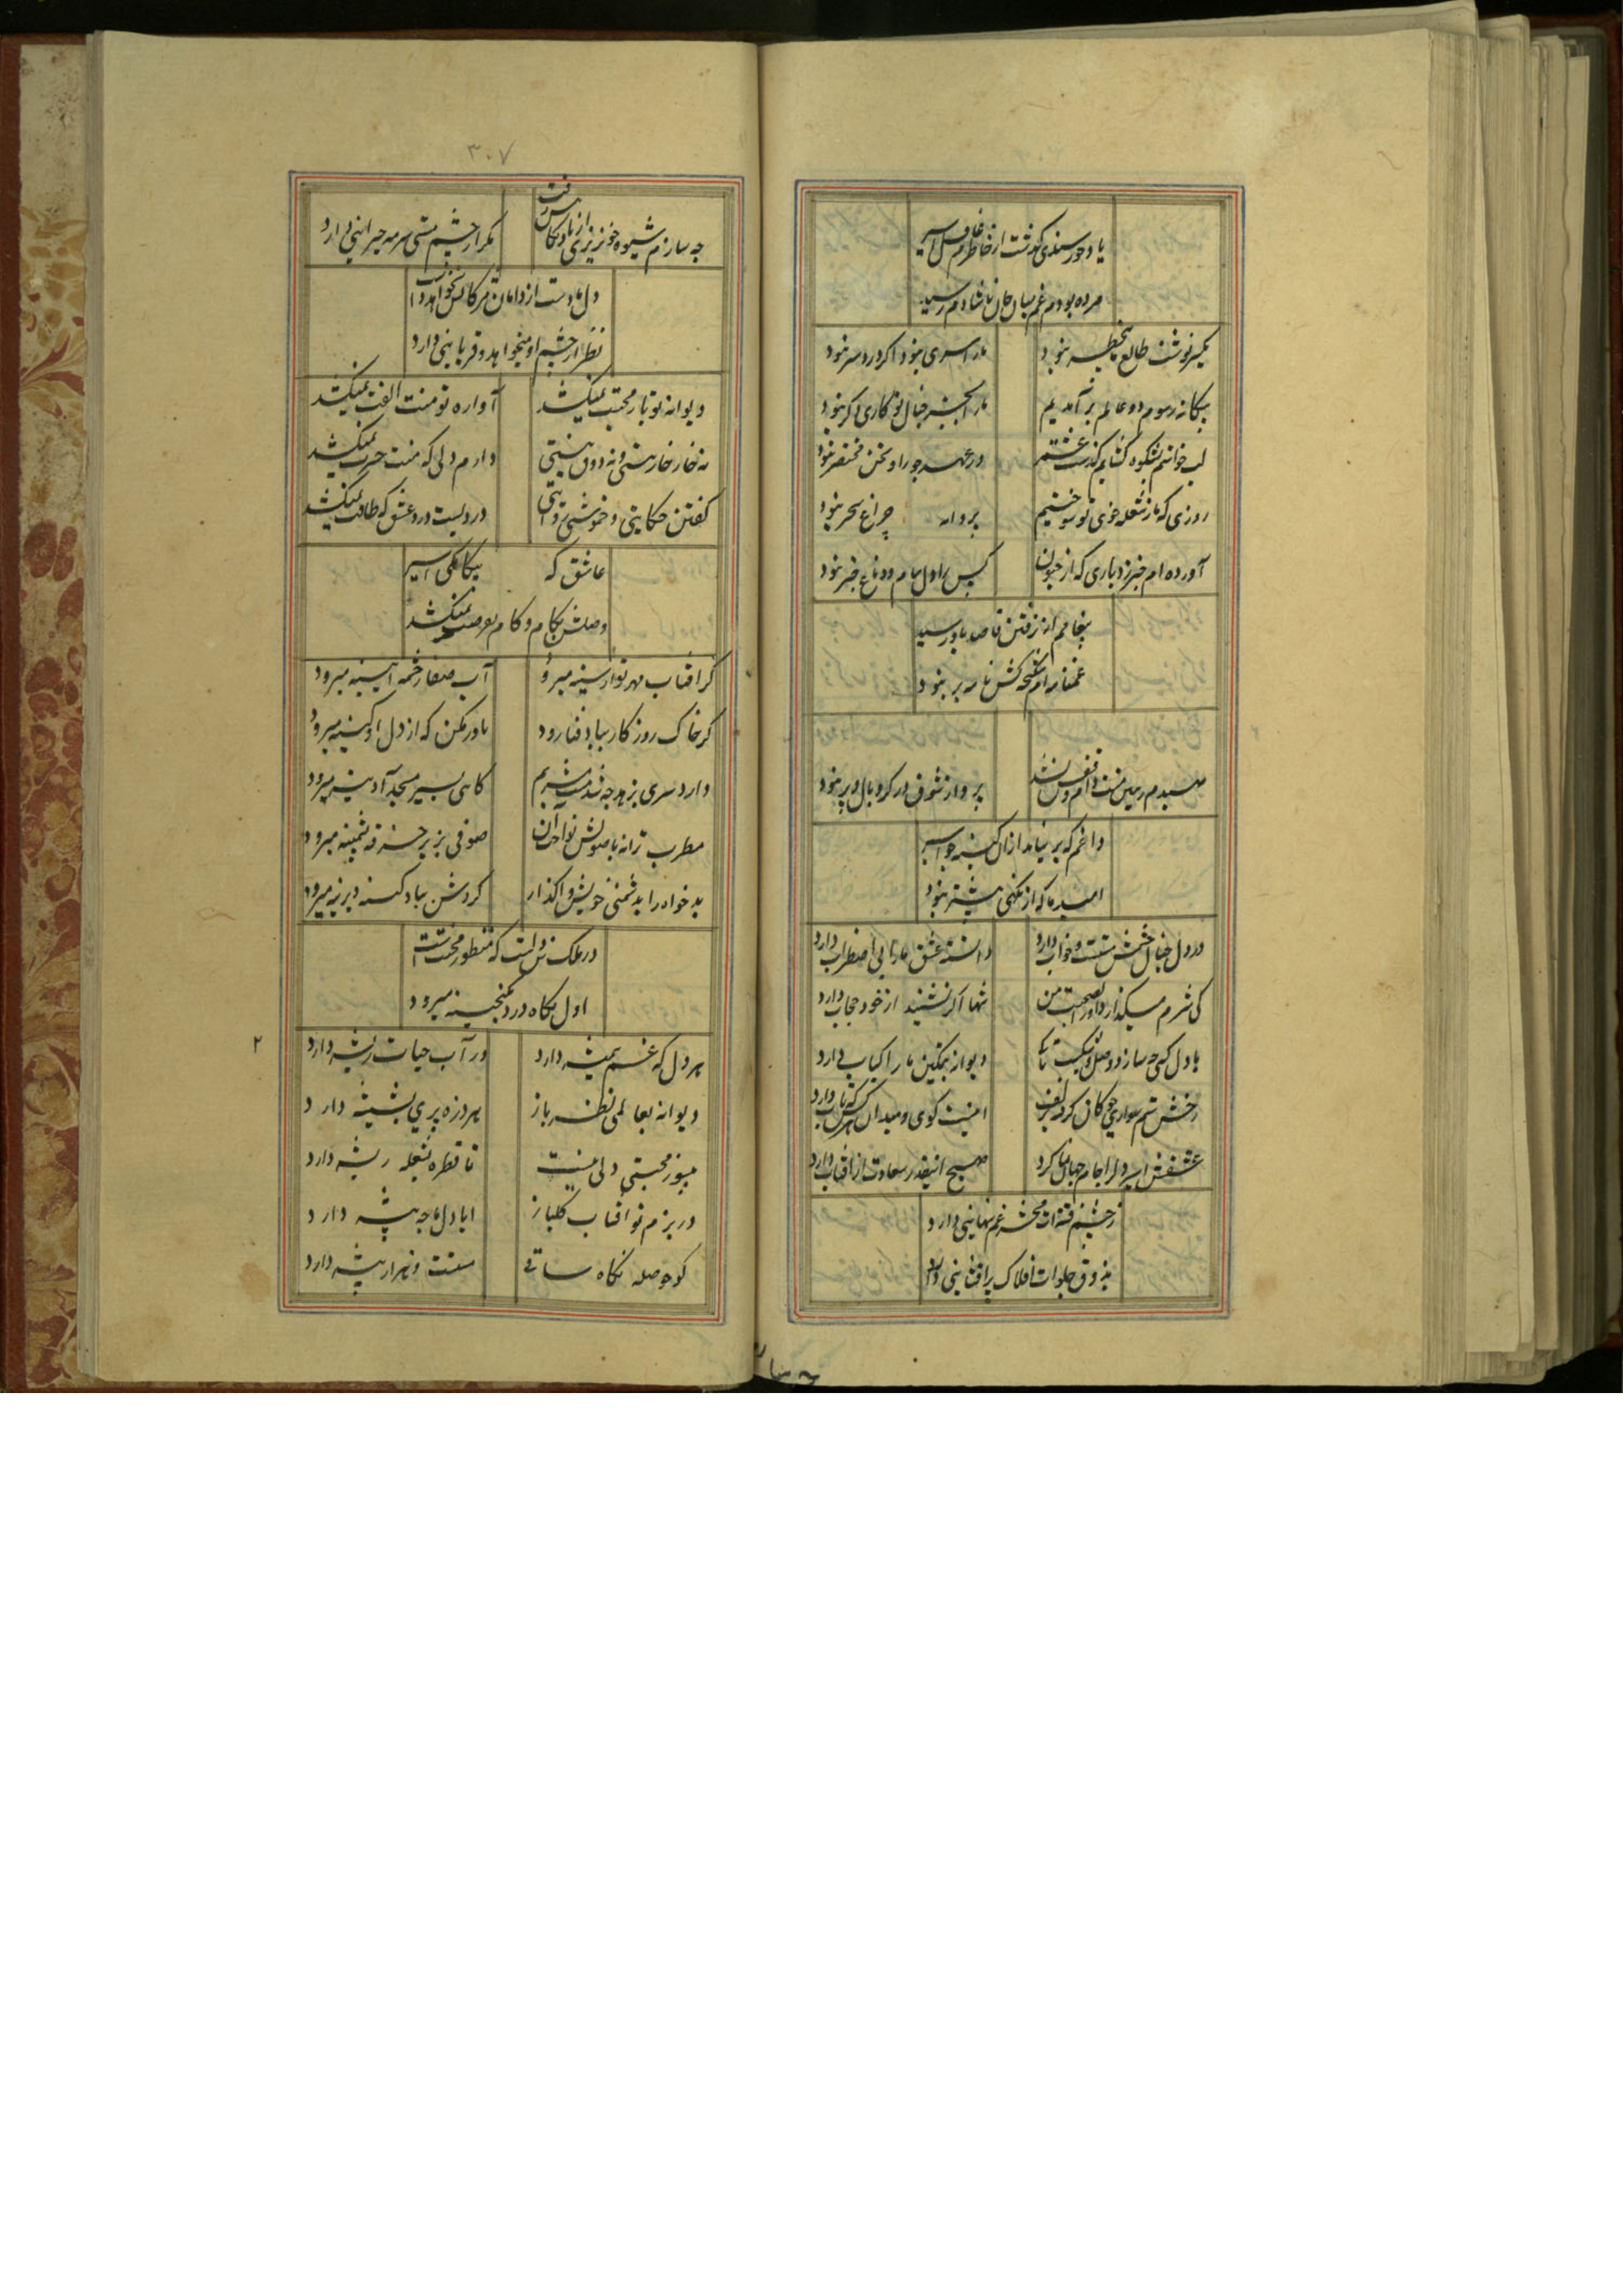 یاد خورسندی گذشت از خاطرم غافل اسیر
مرده بودم غم ببال جان ناشادم رسید
یکسر نوشت طالع بیخطر نبود
ما را سری نبود اگر دردسر نبود
بیگانه رسوم دو عالم برآمدیم
ما را بجز خیال تو کاری دگر نبود
لب خواستم بشکوه گشایم گذشت
در عهد جور او سخن مختصر نبود
روزی که ما ز شعله خوی تو سوختیم
پروانه چراغ سحر نبود
آورده ام خبر ز دیاری که از جنون
کس را دل و دماغ خبر نبود
پیغامم از رفتن قاصد باو رسید
غمنامه ام شکنجه کش نامه بر نبود
پرواز شوق در گرو بال و پر نبود
داغم که بر نیامد از آن کینه جو اسیر
امید ما که از نگهی بیشتر نبود
در دل خیال چشمش مستست و خواب دارد
دانسته عشق ما را بی اضطراب دارد
کی شرم میگذارد او را بصحبت من
تنها اگر نشیند از خود حجاب دارد
با دل کسی چه سازد وصل و شکیب تا کی
دیوانه بتمکین ما را کباب دارد
رخش ستم سواری چوگان گرفته بر کف
اینست گوی و میدان هر کس که تاب دارد
عشقش اسیر دل را جام جهان نما کرد
صبح اینقدر سعادت از آفتاب دارد
ز چشم فتنه ات محشر غم نهانی دارد
بذوق جلوه ات افلاک پرافشانی دارد
۳۰۷
چه سازم شیوه خونریزی از یاد نگاهش رفت
مگر از چشم مستی سرمه حیرانی دارد
دل ما دست از دامان مژگانش نخواهد داشت
نظر از چشم او میخواهد و قربانی دارد
دیوانه تو بار محبت نمیکشد
آواره تو منت الفت نمیکشد
نه خار خار هستی و نه ذوق نیستی
دارم دلی که منت حسرت نمیکشد
گفتن حکایتی و خموشی روایتی
دردیست درد عشق که طاقت نمیکشد
عاشق که بیگانگی اسیر
وصلش بکام و کام بفرصت نمیکشد
گر آفتاب مهر تو از سینه میرود
آب صفا ز چشمه آیینه میرود
گر خاک روزگار بباد فنا رود
باور مکن که از دل او کینه میرود
دارد سری بزهد چه شد مشربم
گاهی بسیر مسجد آدینه میرود
مطرب ترانه با صوتش نوا
صوفی بزیر خرقه پشمینه میرود
بدخواه را بدشمنی خویش واگذار
گردش بباد کینه دیرینه میرود
در ملک دل است که منظور محنت است
اول نگاه درد بگنجینه میرود
هر دل که غم همیشه دارد
در آب حیات ریشه دارد
دیوانه بعالمی نظر باز
هر ذره پری بشیشه دارد
بیسوز محبتی دلی نیست
تا قطره شعله ریشه دارد
۲
در بزم تو آفتاب گلباز
با دل ما چه پیشه دارد
کو حوصله نگاه ساقی
مستست و هزار شیشه دارد